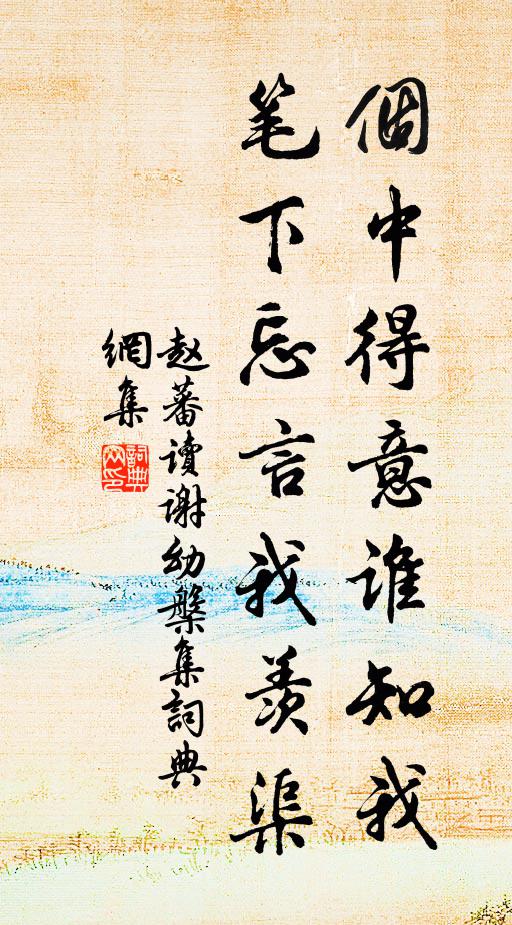 個中得意誰知我
笔下忘言我羨渠
赵蕃讀谢幼槃集詞典
網集
詞典
网印